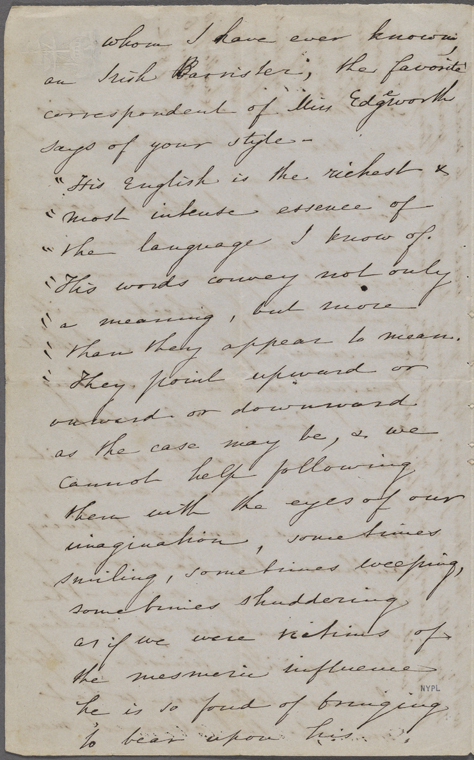 whom I have ever known,
an Irish Barrister, the favorite
correspondent of Miss Edgeworth
says of your style -
"His English is the richest &
" most intense essence of
" the language I know of.
" His words convey not only
" a meaning, but more
" than they appear to mean.
" They point upward or
onward or downward
as the case may be, & we
cannot help following
them with the eyes of our
imagination, sometimes
smiling, sometimes weeping,
sometimes shuddering
as if we were victims of
the mesmeric influence
he is so fond of bringing
to bear upon his
NYPL